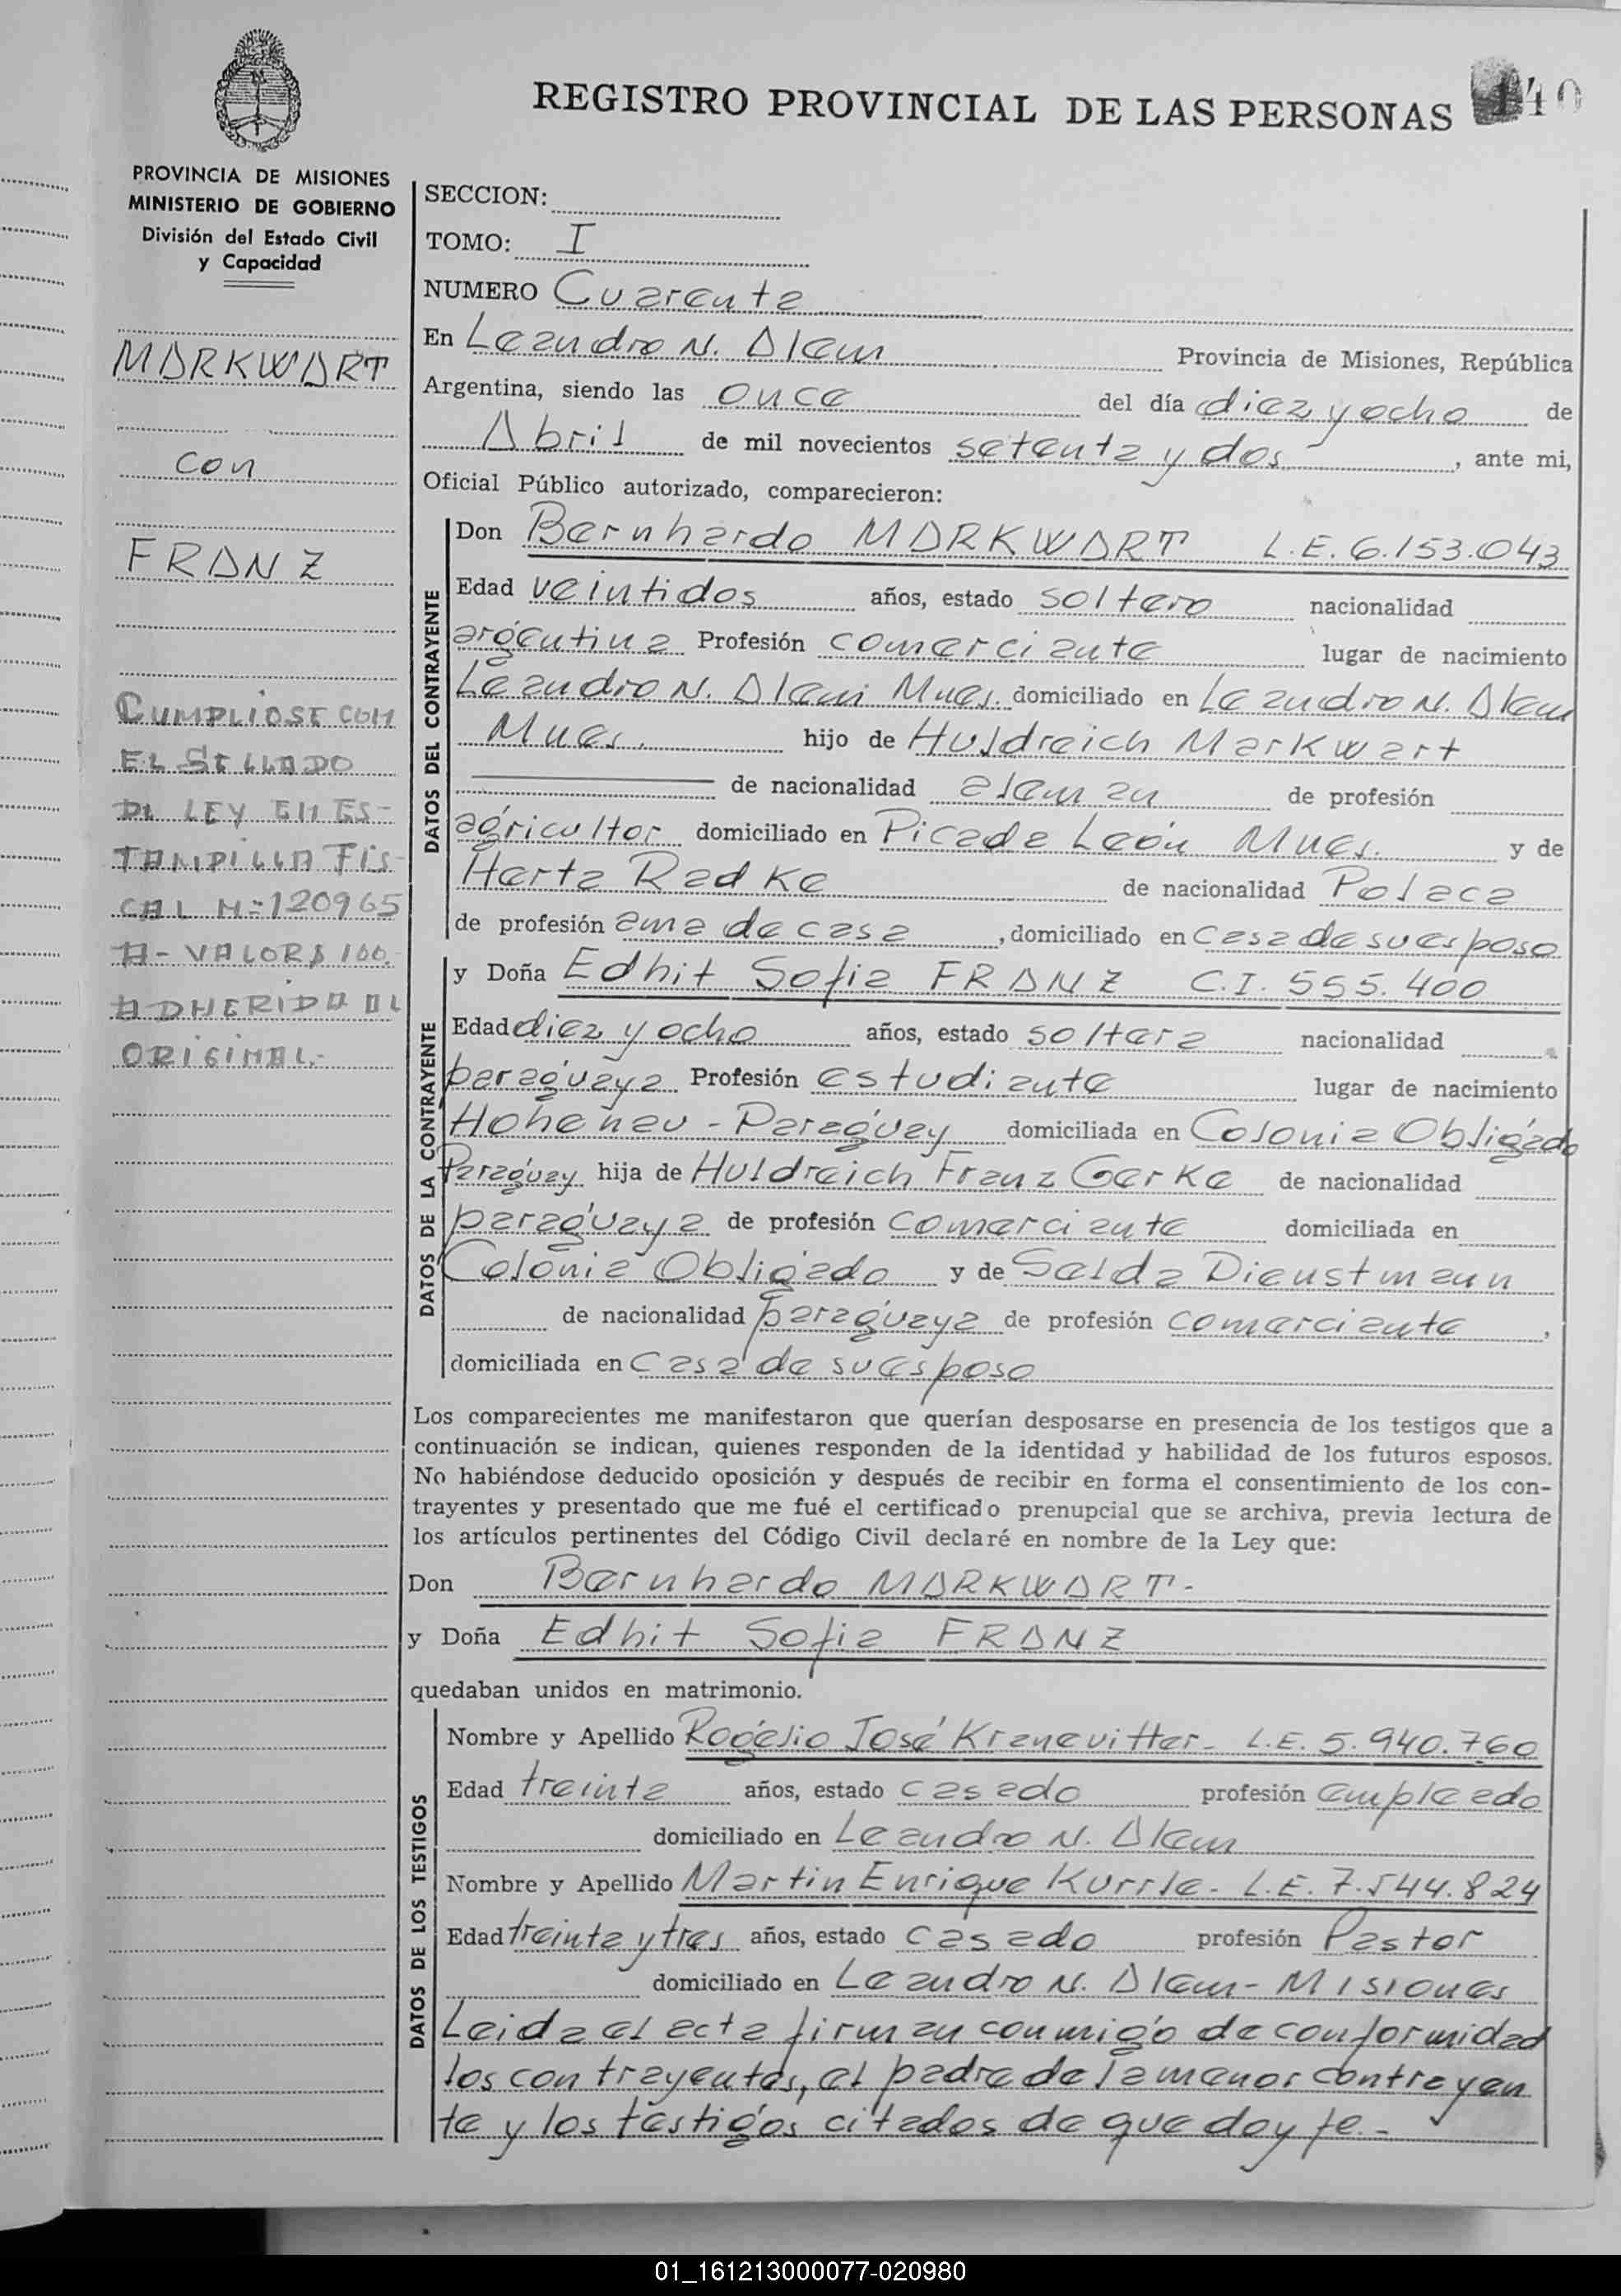 REGISTRO PROVINCIAL DE LAS PERSONAS
140
PROVINCIA DE MISIONES
MINISTERIO DE GOBIERNO
División del Estado Civil
y Capacidad
MARKWART
con
FRANZ
CUMPLIOSE CON
EL SELLADO
DE LEY EN ES-
TAMPILLA FIS-
CAL Nº 120965
A- VALOR $ 100.
ADHERIDA AL
ORIGINAL.-
SECCION:
TOMO: I
NUMERO Cuarenta
En Leandro N. Alem Provincia de Misiones, República
Argentina, siendo las once del día diez y ocho de
Abril de mil novecientos setenta y dos, ante mi,
Oficial Público autorizado, comparecieron:
DATOS DEL CONTRAYENTE
Don Bernhardo MARKWART L.E. 6.153.043
Edad veintidos años, estado soltero nacionalidad
argentina Profesión comerciante lugar de nacimiento
Leandro N. Alem Mnes. domiciliado en Leandro N. Alem
Mnes. hijo de Huldreich Markwart
de nacionalidad aleman de profesión
agricultor domiciliado en Picada León Mnes. y de
Herta Radke de nacionalidad Polaca
de profesión ama de casa, domiciliado en casa de su esposo
DATOS DE LA CONTRAYENTE
y Doña Edhit Sofia FRANZ C.I. 555.400
Edad diez y ocho años, estado soltera nacionalidad
paraguaya Profesión estudiante lugar de nacimiento
Hoheñau - Paraguay domiciliada en Colonia Obligado
Paraguay hija de Huldreich Franz Gerke de nacionalidad
paraguaya de profesión comerciante domiciliada en
Colonia Obligado y de Selda Dienstmann
de nacionalidad paraguaya de profesión comerciante,
domiciliada en casa de su esposo
Los comparecientes me manifestaron que querían desposarse en presencia de los testigos que a
continuación se indican, quienes responden de la identidad y habilidad de los futuros esposos.
No habiéndose deducido oposición y después de recibir en forma el consentimiento de los con-
trayentes y presentado que me fué el certificado prenupcial que se archiva, previa lectura de
los artículos pertinentes del Código Civil declaré en nombre de la Ley que:
Don Bernhardo MARKWART-
y Doña Edhit Sofia FRANZ
quedaban unidos en matrimonio.
DATOS DE LOS TESTIGOS
Nombre y Apellido Rogelio José Kranevitter- L.E. 5.940.760
Edad treinta años, estado casado profesión empleado
domiciliado en Leandro N. Alem
Nombre y Apellido Martin Enrique Kurrle- L.E. 7.544.824
Edad treinta y tres años, estado casado profesión Pastor
domiciliado en Leandro N. Alem- MISIONES
Leida el acta firman conmigo de conformidad
los contrayentes, el padre de la menor contrayen
te y los testigos citados de que doy fe.-
01_161213000077-020980